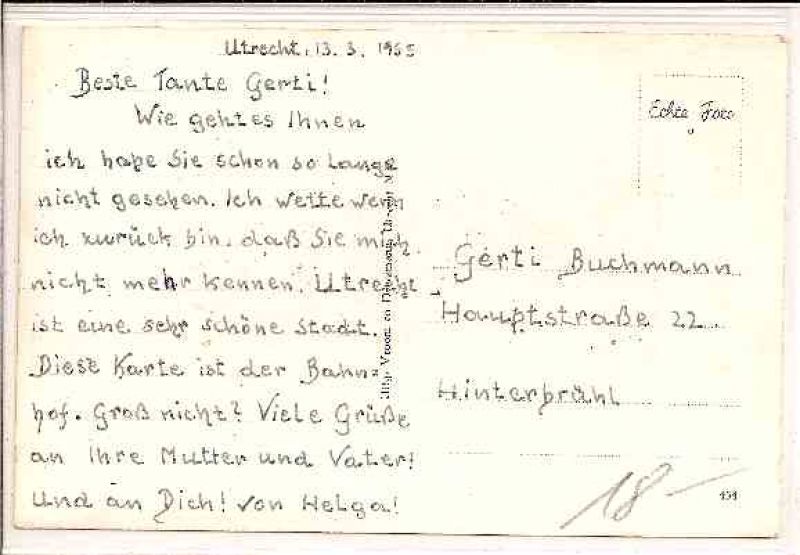 Utrecht, 13. 3. 1955
Beste Tante Gerti!
Wie geht es Ihnen
ich habe Sie schon so lange
nicht gesehen. Ich wette wenn
ich zurück bin, daß Sie mich
nicht mehr kennen. Utrecht
ist eine sehr schöne Stadt.
Diese Karte ist der Bahn=
hof. Groß nicht? Viele Grüße
an Ihre Mutter und Vater!
Und an Dich! von Helga!
Echte Foto
Gerti Buchmann
Hauptstraße 22
Hinterbrühl
18-